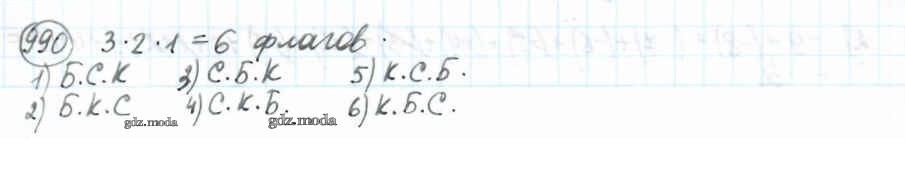 990 3·2·1=6 флагов.
1) Б.С.К 3) С.Б.К 5) К.С.Б.
2) Б.К.С 4) С.К.Б. 6) К.Б.С.
gdz.moda gdz.moda